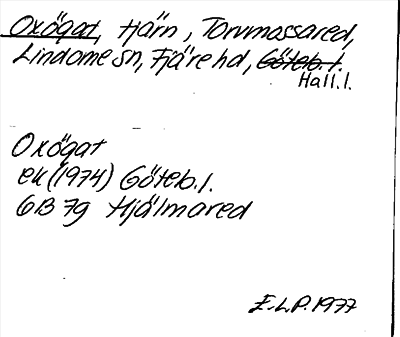 Oxögat, tjärn, Torvmossared,
Lindome sn, Fjäre hd, Göteb.l.
Hall.l.
Oxögat
ek (1974) Göteb.l.
6B 7g Hjälmared
E.L.P. 1977